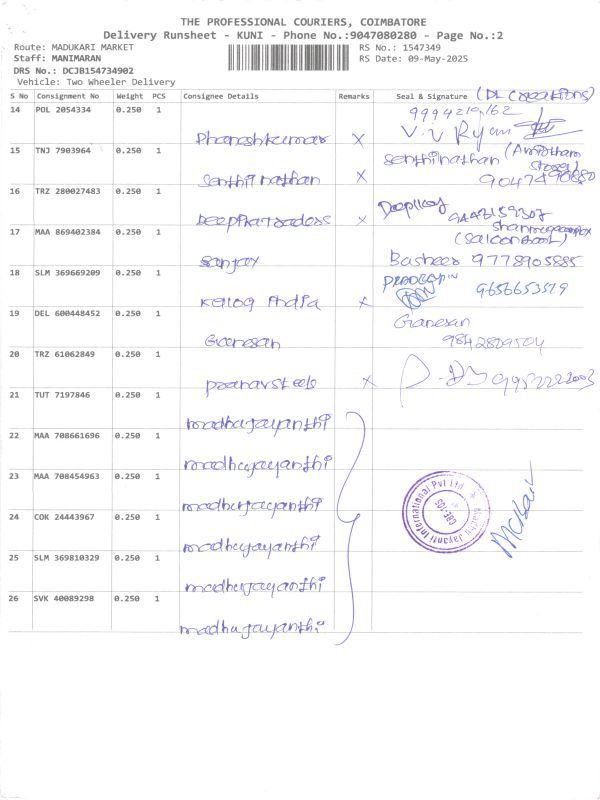 THE PROFESSIONAL COURIERS, COIMBATORE
Delivery Runsheet - KUNI - Phone No.:9047080280 - Page No.:2
Route: MADUKARI MARKET RS No.: 1547349
Staff: MANIMARAN RS Date: 09-May-2025
DRS No.: DCJB154734902
Vehicle: Two Wheeler Delivery
S No Consignment No Weight PCS Consignee Details Remarks Seal & Signature (DL Creations)
14 POL 2054334 0.250 1 Dhanashkumar X
15 TNJ 7903964 0.250 1 Senthilnathan X Senthilnathan
16 TRZ 280027483 0.250 1 X
17 MAA 869402384 0.250 1 Sanjay Basheer 9778905885
18 SLM 369669209 0.250 1 X 9656653519
19 DEL 600448452 0.250 1 Ganesan Ganesan
20 TRZ 61062849 0.250 1 X
21 TUT 7197846 0.250 1 madhujayanthi
22 MAA 708661696 0.250 1 madhujayanthi
23 MAA 708454963 0.250 1 madhujayanthi
24 COK 24443967 0.250 1 madhujayanthi
25 SLM 369810329 0.250 1 madhujayanthi
26 SVK 40089298 0.250 1 madhujayanthi
Madhu Jayanti International Pvt Ltd
CBE-105